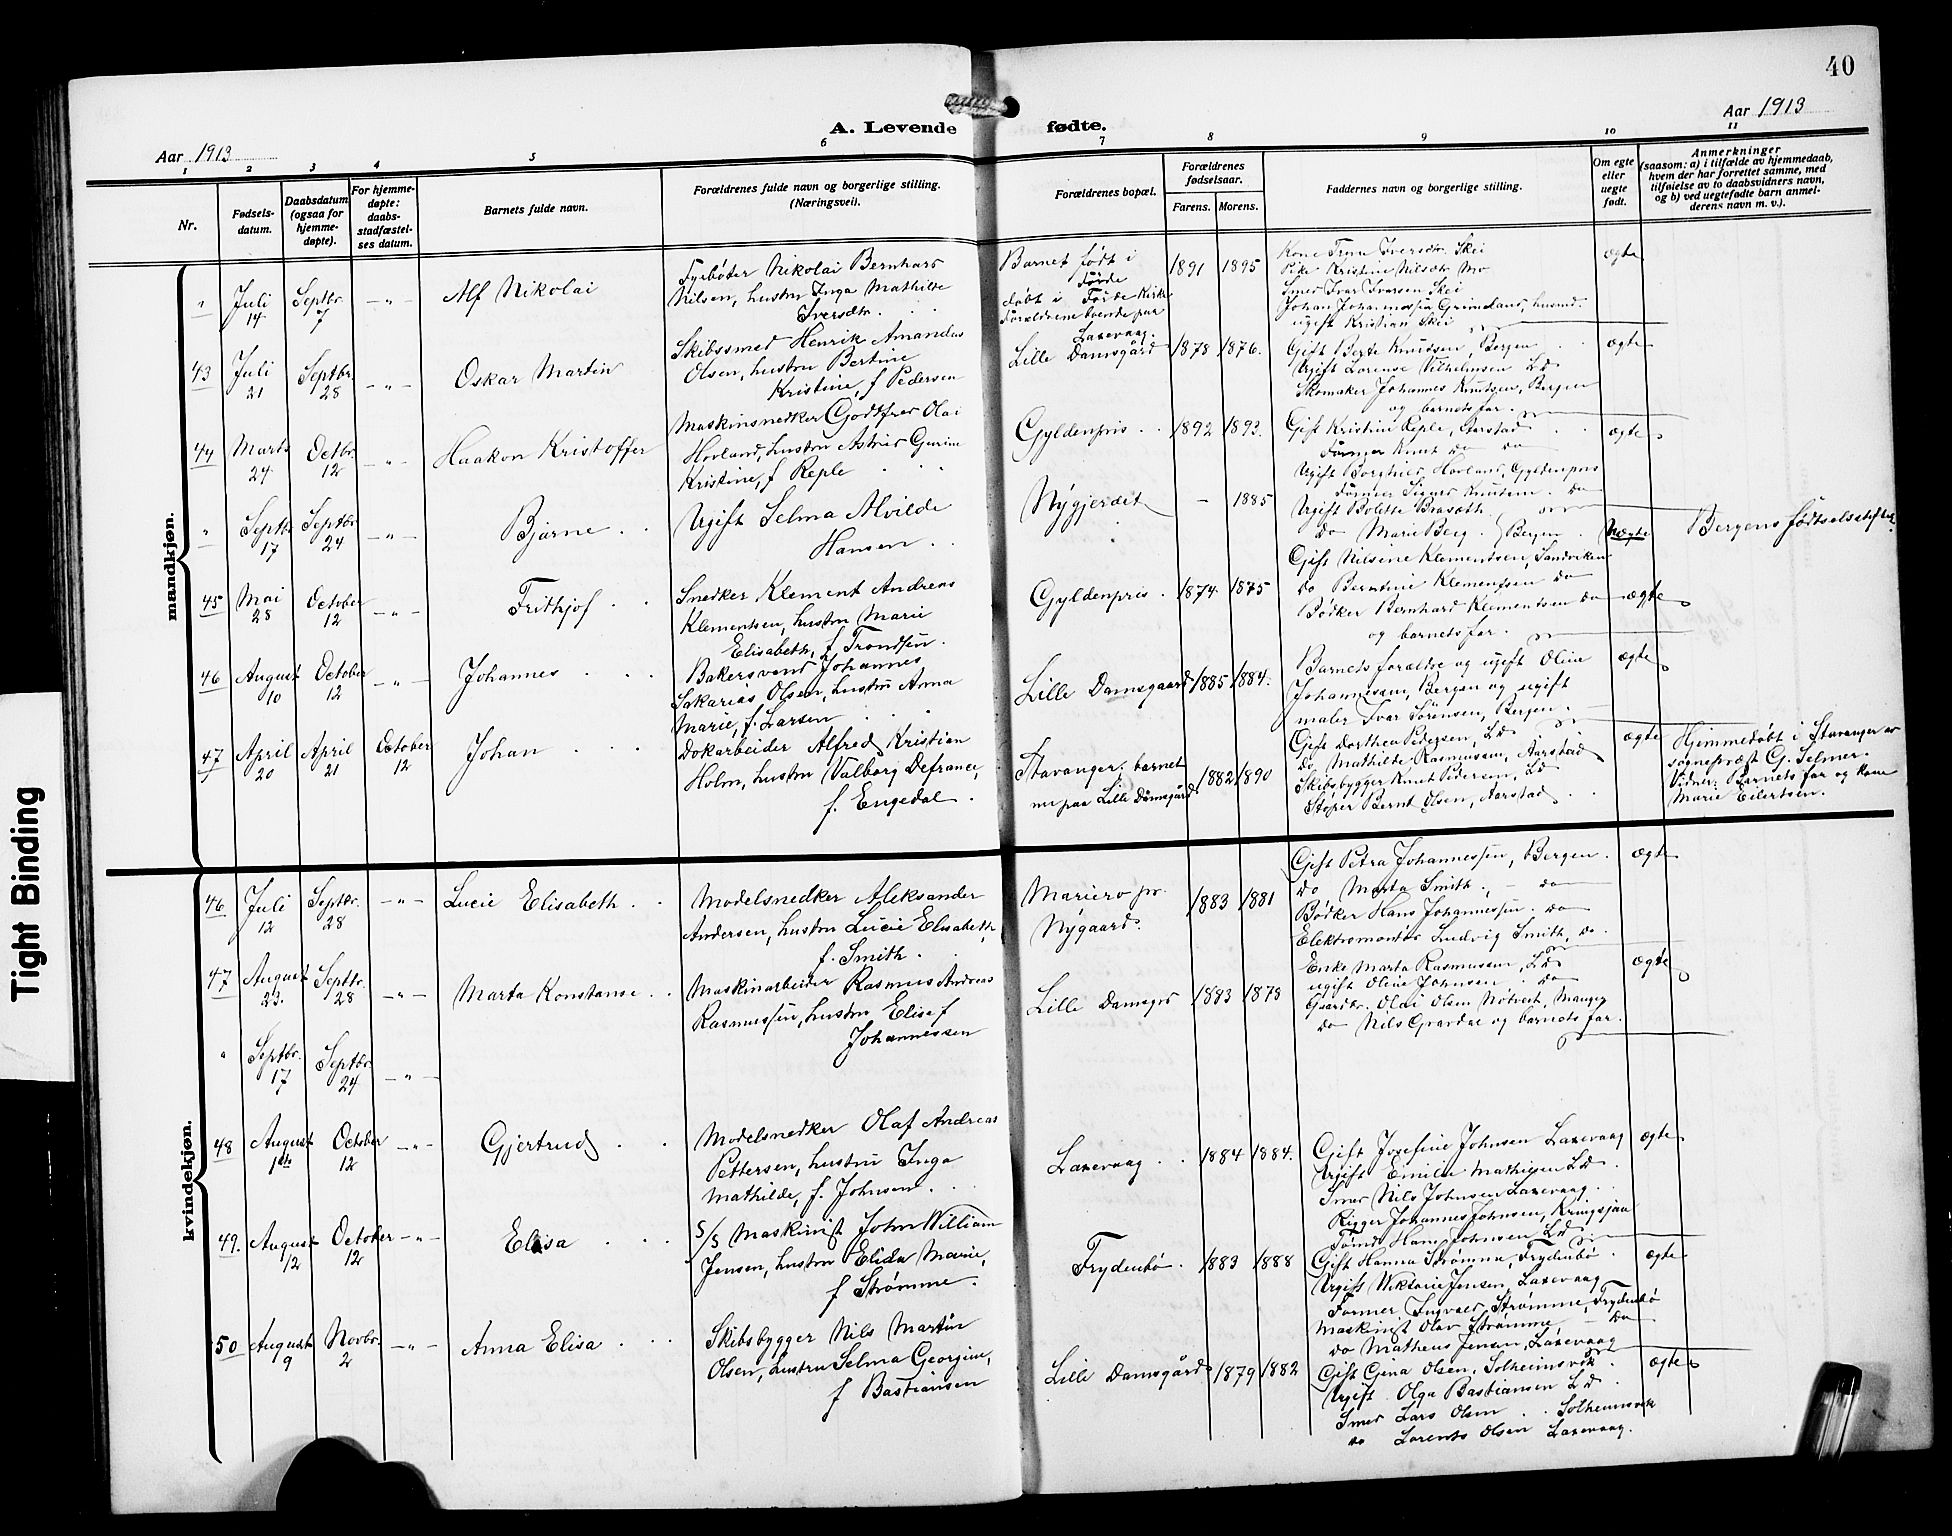 40
A. Levende fødte.
Aar 1913
Aar 1913
1 2 3 4 5 6 7 8 9 10 11
Nr.
Fødsels-
datum.
Daabsdatum
(ogsaa for
hjemme-
døpte).
For hjemme-
døpte:
daabs-
stadfæstel-
ses datum.
Barnets fulde navn.
Forældrenes fulde navn og borgerlige stilling.
(Næringsvei).
Forældrenes bopæl.
Forældrenes
fødselsaar.
Farens. Morens.
Faddernes navn og borgerlige stilling.
Om egte
eller
uegte
født.
Anmerkninger
(saasom: a) i tilfælde av hjemmedaab,
hvem der har forrettet samme, med
tilføielse av to daabsvidners navn,
og b) ved uegtefødte barn anmel-
derens navn m. v.).
mandkjøn.
" Juli 14 Septbr. 7 — " — Alf Nikolai
Fyrbøter Nikolai Bernhard
Nilsen, hustru Inga Mathilde
Iversdtr.
Barnet født i
Førde
døbt i Førde Kirke
Forældrene boende paa
Laxevaag.
1891 1895
Kone Trine Iversdtr. Skei
Pike Kristine Nilsdtr. Mo
Smed Ivar Iversen Skei
Johan Johannessen Grimeland, husmd.
ugift Kristian Skei
ægte
43 Juli 21 Septbr. 28 — " — Oskar Martin
Skibssmed Henrik Amandus
Olsen, hustru Bertine
Kristine, f Pedersen
Lille Damsgård 1878 1876.
Gift Berte Knudsen, Bergen
Ugift Lorense Vilhelmsen Ld
Skomaker Johannes Knutsen, Bergen
og barnets far.
ægte
44 Marts 24 Octbr. 12 — " — Haakon Kristoffer
Maskinsnedker Godtfred Olai
Hovland, hustru Astrid Gurine
Kristine, f Reple
Gyldenpris 1892 1893.
Gift Kristine Reple, Aarstad
Former Knut do do
Ugift Borghild Hovland, Gyldenpris
Former Sigurd Knutsen. do
ægte
" Septbr 17 Septbr. 24 — " — Bjarne
Ugift Selma Alvilde
Hansen
Nygjerdet — 1885
Ugift Bolette Brasæth
do Marie Berg Bergen
Uægte
Bergens fødselsstiftels.
45 Mai 28 October 12 — " — Frithjof
Snedker Klement Andreas
Klementsen, hustru Marie
Elisabeth, f Trondsen.
Gyldenpris 1874 1875
Gift Nilsine Klementsen, Sandviken
do Berntine Klementsen do
Bødker Bernhard Klementsen do
og barnets far.
ægte
46 August 10 October 12 — " — Johannes
Bakersvend Johannes
Sakarias Olsen, hustru Anna
Marie, f. Larsen
Lille Damsgaard 1885 1884.
Barnets forældre og ugift Oline
Johannesen, Bergen og ugift
maler Ivar Sørensen, Bergen.
ægte
47 April 20 April 21 October 12 Johan
Dokarbeider Alfred Kristian
Holm, hustru Valborg Defrance,
f. Engedal.
Stavanger, barnet
nu paa Lille Damsgård 1882 1890
Gift Dorthea Pedersen, Ld
do Mathilde Rasmussen, Aarstad
Skibsbygger Knut Pedersen, Ld
Støper Bernt Olsen, Aarstad
ægte
Hjemmedøbt i Stavanger av
sogneprest G. Selmer.
Vidner: Barnets far og kone
Marie Eilertsen.
kvindekjøn.
46 Juli 12 Septbr. 28 — " — Lucie Elisabeth
Modelsnedker Aleksander
Andersen, hustru Lucie Elisabeth,
f. Smith.
Mariero pr.
Nygaard. 1883 1881
Gift Petra Johannessen, Bergen.
do Marta Smith, — do
Bødker Hans Johannessen. do
Elektromontør Ludvig Smith, do.
ægte
47 August 23. Septbr. 28 — " — Marta Konstanse
Maskinarbeider Rasmus Andreas
Rasmussen, hustru Elise f
Johannessen
Lille Damsgrd 1883 1878
Enke Marta Rasmussen, Ld
ugift Oline Johnsen, do
Gaardbr. Olai Olsen Nøtvedt, Manger
do Nils Grardæ og barnets far.
ægte
" Septbr. 17 Septbr. 24 — " —
48 August 1ste October 12 — " — Gjertrud
Modelsnedker Olaf Andreas
Pettersen, hustru Inga
Mathilde, f. Johnsen.
Laxevaag 1884 1884.
Gift Josefine Johnsen Laxevaag
Ugift Emilie Mathiesen Ld
Smed Nils Johnsen Laxevaag
Rigger Johannes Johnsen, Kringsjaa
Tømd. Hans Johnsen Ld
ægte
49. August 12 October 12 — " — Elisa
S/S Maskinist John William
Jensen, hustru Elida Marie,
f Strømme.
Frydenbø. 1883 1888
Gift Hanna Strømme, Frydenbø
Ugift Viktorie Jensen, Laxevaag
Former Ingvald Strømme, Frydenbø
Maskinist Olav Strømme — do
do Matheus Jensen, Laxevaag
ægte
50 August 9 Novbr. 2 — " — Anna Elisa
Skibsbygger Nils Martin
Olsen, hustru Selma Georgine,
f Bastiansen
Lille Damsgård 1879 1882
Gift Gina Olsen, Solheimsvik
Ugift Olga Bastiansen Ld
Smed Lars Olsen Solheimsvik
do Lorents Olsen Laxevaag.
ægte
Tight Binding